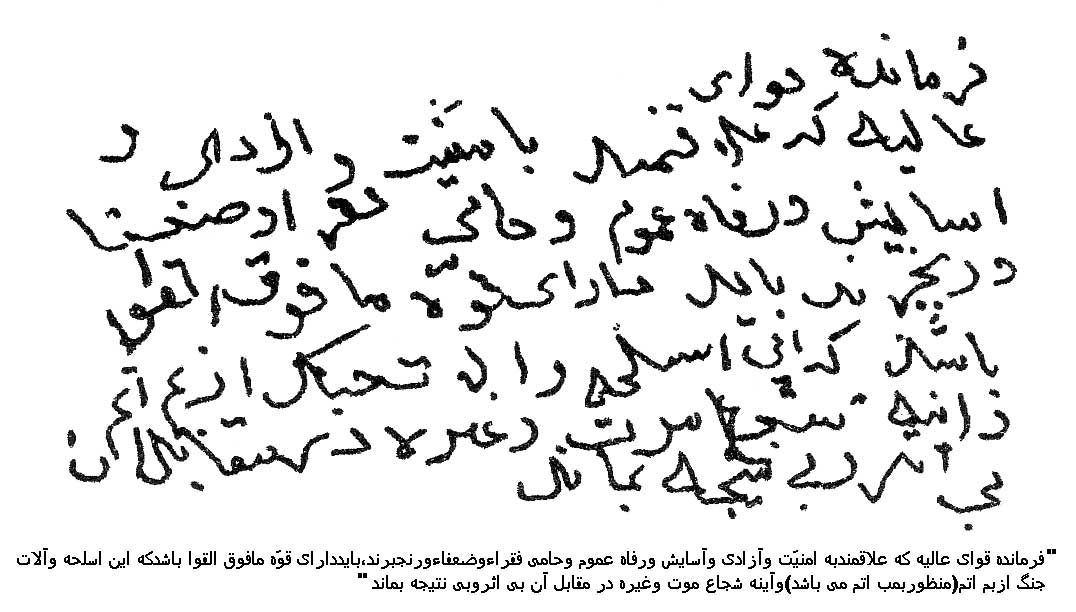 فرمانده قوای
عالیه که علاقمند بامنیّت و ازادی و
اسایش و رفاه عموم و حامی فقرا و ضعفا
و رنجبرند باید دارای قوّه مافوق القوا
باشد که این اسلحه و الات جنگ از بم اتم
و اینه شجاع موت و غیره در مقابل ان
بی اثر و بی نتیجه بماند
"فرمانده قوای عالیه که علاقمندبه امنیّت وآزادی وآسایش ورفاه عموم وحامی فقراءوضعفاءورنجبرند،بایددارای قوّه مافوق القوا باشدکه این اسلحه وآلات
جنگ ازبم اتم(منظوربمب اتم می باشد)وآینه شجاع موت وغیره در مقابل آن بی اثروبی نتیجه بماند"